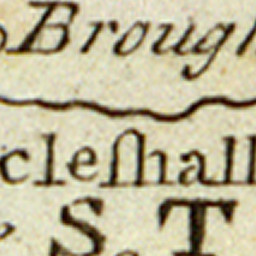 Brough
cleſhall
S T